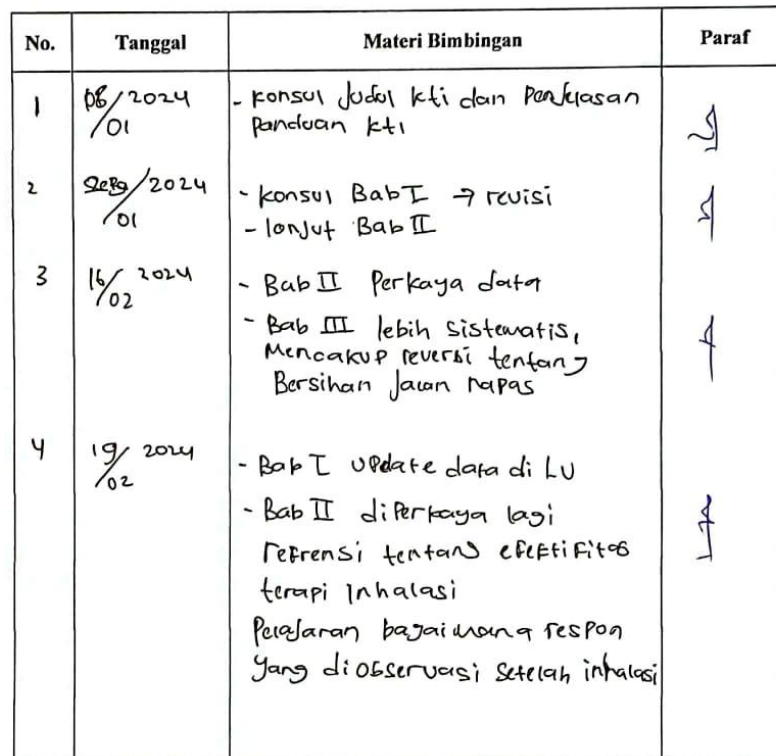 No. Tanggal Materi Bimbingan Paraf
1 08/01 2024 - Konsul Judul kti dan Penjelasan
Panduan kti
2 /01 2024 - Konsul Bab I → revisi
- lanjut Bab II
3 16/02 2024 - Bab II Perkaya data
- Bab III lebih sistematis,
Mencakup reversi tentang
Bersihan Jalan napas
4 19/02 2024 - Bab I update data di LU
- Bab II diperkaya lagi
refrensi tentang efektifitas
terapi Inhalasi
bagaimana respon
yang diobservasi setelah inhalasi